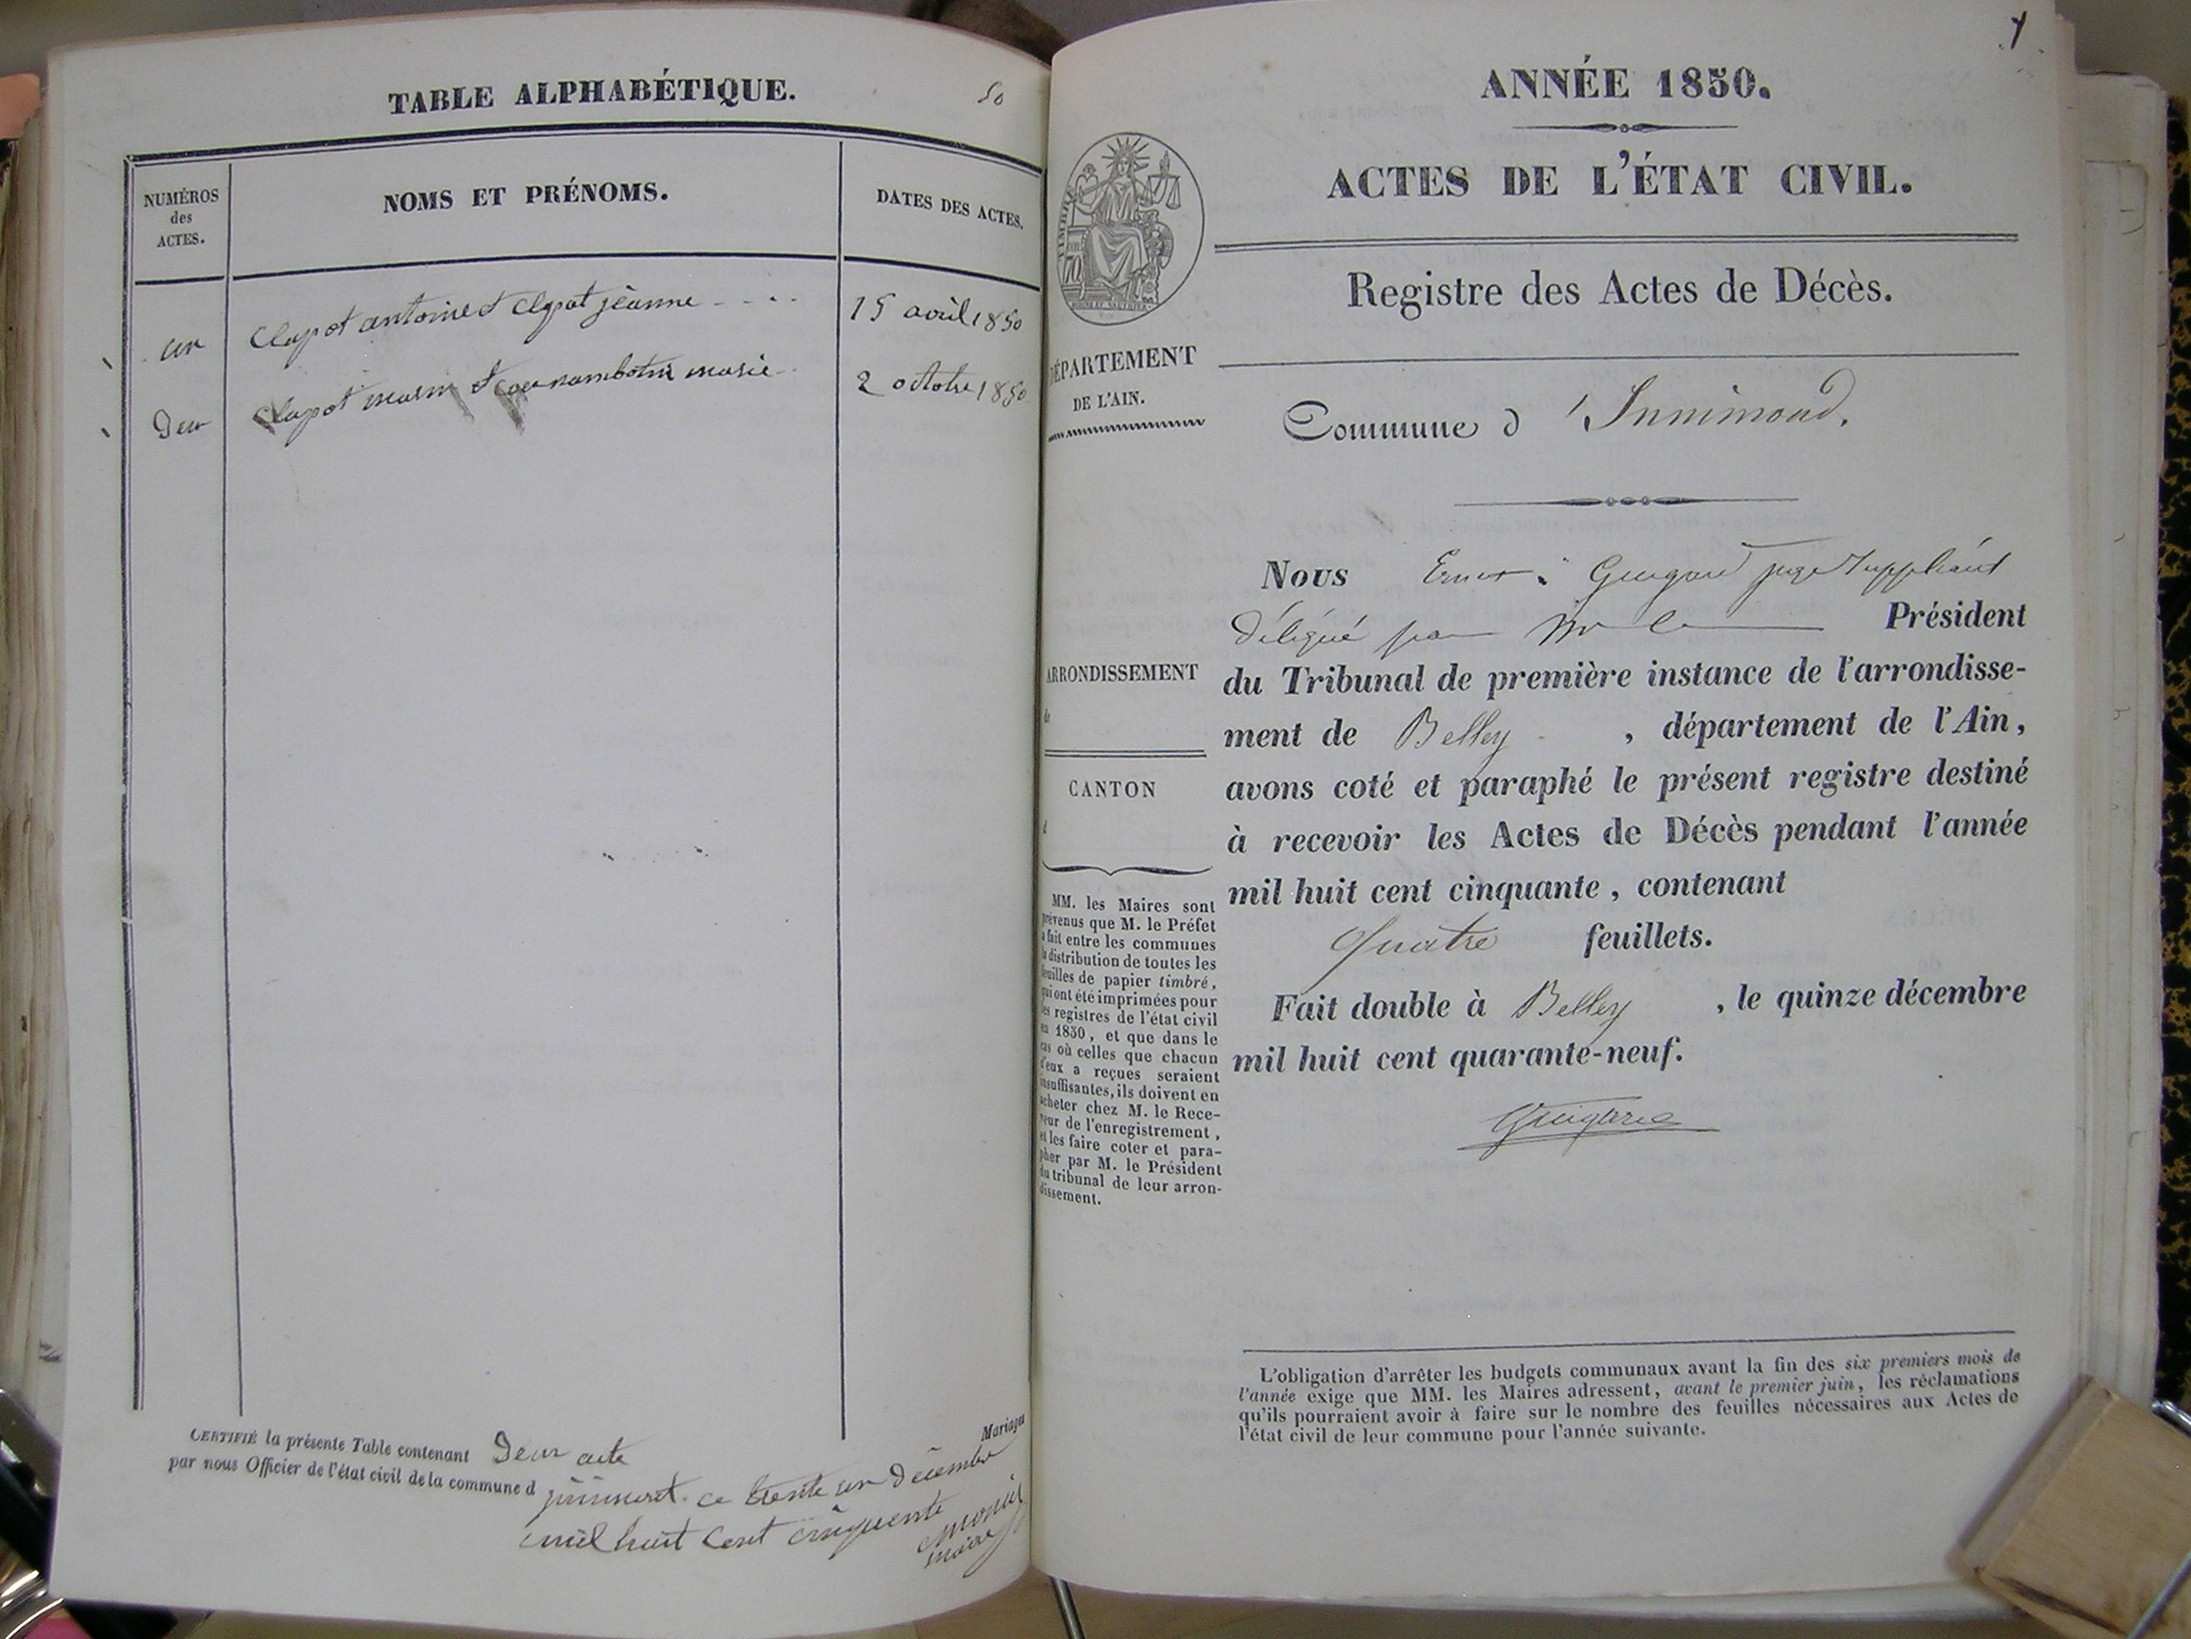 TABLE ALPHABÉTIQUE.
50
NUMÉROS
des
ACTES.
NOMS ET PRÉNOMS.
DATES DES ACTES.
un
Clapot antoine et Clapot jeanne
15 avril 1850
Deux
Clapot marie
2 octobre 1850
CERTIFIÉ la présente Table contenant Deux acte Mariages
par nous Officier de l'état civil de la commune d
ce trente un Décembre
mil huit cent cinquente
maire
1
ANNÉE 1850.
ACTES DE L'ÉTAT CIVIL.
Registre des Actes de Décès.
TIMBRE
70
DÉPARTEMENT
DE L'AIN.
Commune d'Innimond.
Nous Guigard juge Suppléant
Délégué par Mr le Président
du Tribunal de première instance de l'arrondisse-
ment de Belley, département de l'Ain,
avons coté et paraphé le présent registre destiné
à recevoir les Actes de Décès pendant l'année
mil huit cent cinquante, contenant
Quatre feuillets.
Fait double à Belley, le quinze décembre
mil huit cent quarante-neuf.
Guigard
ARRONDISSEMENT
de
CANTON
d
MM. les Maires sont
prévenus que M. le Préfet
a fait entre les communes
la distribution de toutes les
feuilles de papier timbré,
qui ont été imprimées pour
les registres de l'état civil
en 1850, et que dans le
cas où celles que chacun
d'eux a reçues seraient
insuffisantes, ils doivent en
acheter chez M. le Rece-
veur de l'enregistrement,
et les faire coter et para-
pher par M. le Président
du tribunal de leur arron-
dissement.
L'obligation d'arrêter les budgets communaux avant la fin des six premiers mois de
l'année exige que MM. les Maires adressent, avant le premier juin, les réclamations
qu'ils pourraient avoir à faire sur le nombre des feuilles nécessaires aux Actes de
l'état civil de leur commune pour l'année suivante.